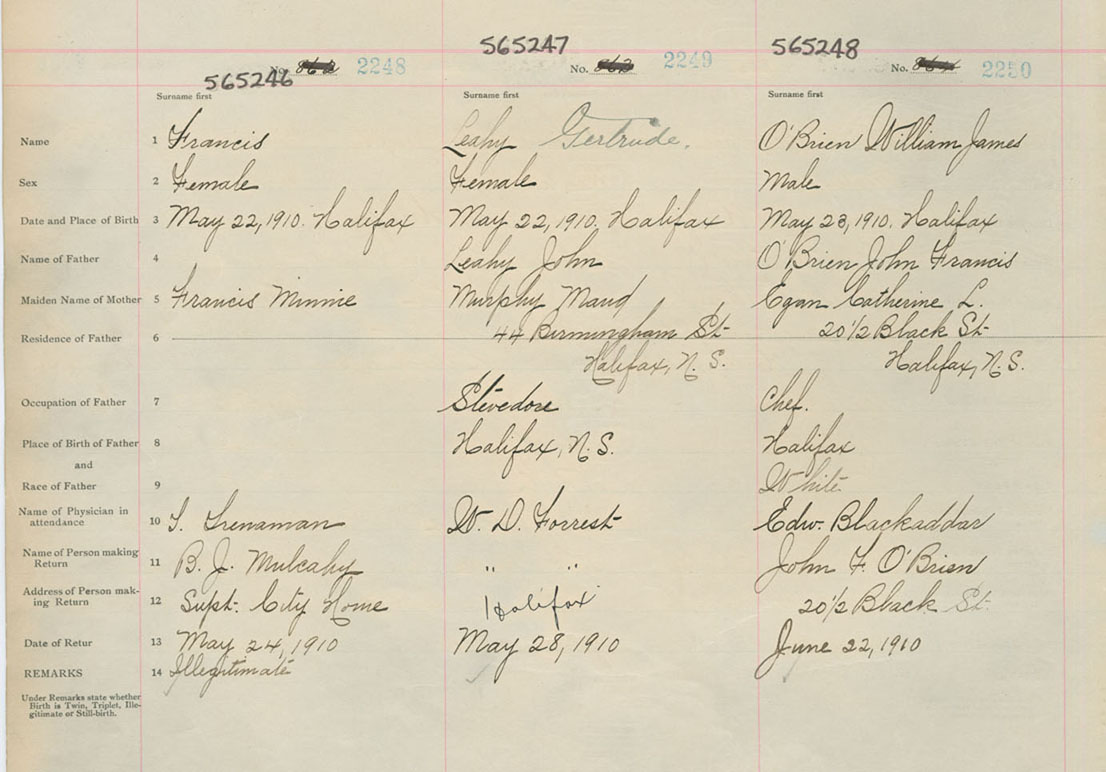 565246 No. 2248 565247 No. 863 2249 565248 No. 864 2250
Surname first Surname first Surname first
Name 1 Francis Leahy Gertrude. O'Brien William James
Sex 2 Female Female Male
Date and Place of Birth 3 May 22, 1910. Halifax May 22, 1910. Halifax May 23, 1910. Halifax
Name of Father 4 Leahy John O'Brien John Francis
Maiden Name of Mother 5 Francis Minnie Murphy Maud Egan Catherine L.
Residence of Father 6 44 Birmingham St 20 1/2 Black St
Halifax, N. S. Halifax, N. S.
Occupation of Father 7 Stevedore Chef.
Place of Birth of Father 8 Halifax, N. S. Halifax
and
Race of Father 9 White
Name of Physician in attendance 10 T. Trenaman W. D. Forrest Edw. Blackaddar
Name of Person making Return 11 B. J. Mulcahy " " John F. O'Brien
Address of Person mak-
ing Return 12 Supt. City Home Halifax 20 1/2 Black St.
Date of Retur 13 May 24, 1910 May 28, 1910 June 22, 1910
REMARKS 14 Illegitimate
Under Remarks state whether
Birth is Twin, Triplet, Ille-
gitimate or Still-birth.